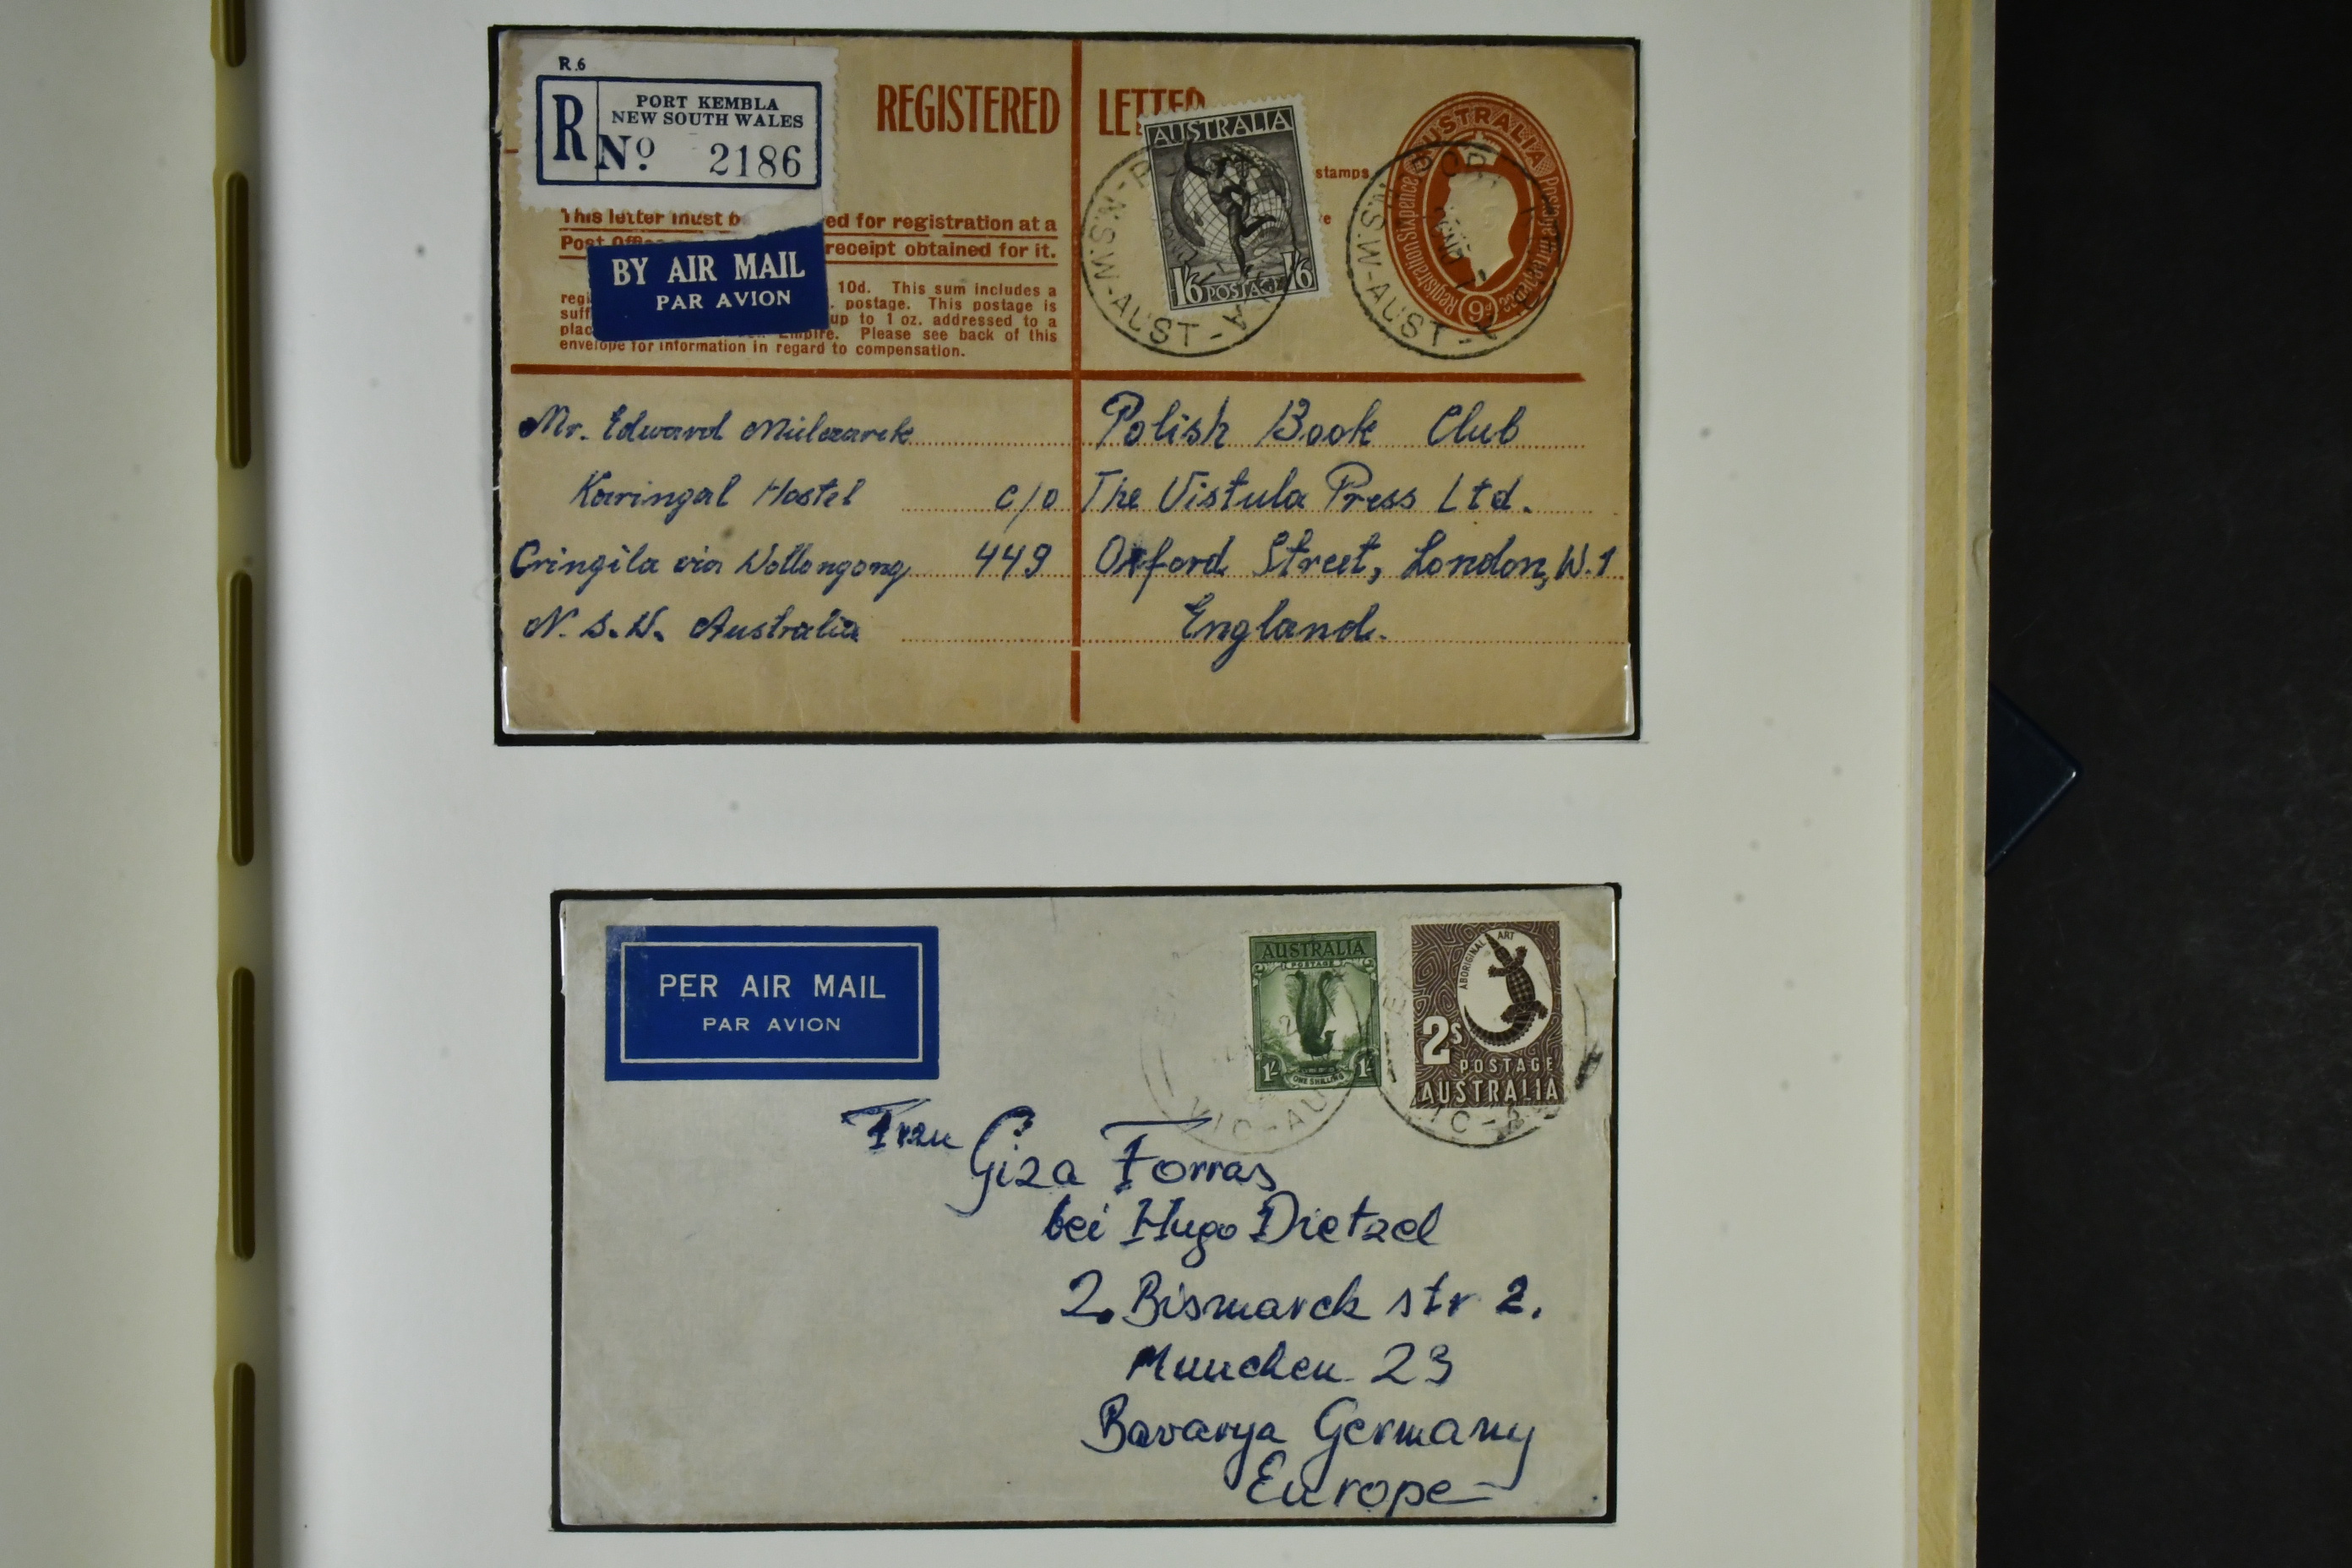 R.6
R
PORT KEMBLA
NEW SOUTH WALES
No. 2186
REGISTERED LETTER
stamps
This letter must b ed for registration at a
Post receipt obtained for it.
BY AIR MAIL
PAR AVION
10d. This sum includes a
regi . postage. This postage is
suff up to 1 oz. addressed to a
plac Empire. Please see back of this
envelope for information in regard to compensation.
AUSTRALIA
1/6 POSTAGE 1/6
N.S.W-AUST
AUSTRALIA
Registration Sixpence
Postage
9d
N.S.W-AUST
Mr. Edward Mielczarek
Karingal Hostel
Cringila via Wollongong
N. S. W. Australia
Polish Book Club
c/o The Vistula Press Ltd.
449 Oxford Street, London, W.1.
England.
PER AIR MAIL
PAR AVION
AUSTRALIA
POSTAGE
1/- ONE SHILLING 1/-
VIC-AU
ABORIGINAL ART
2s
POSTAGE
AUSTRALIA
Frau Giza Forras
bei Hugo Dietzel
2. Bismarck str 2.
Munchen 23
Bavarya Germany
Europe